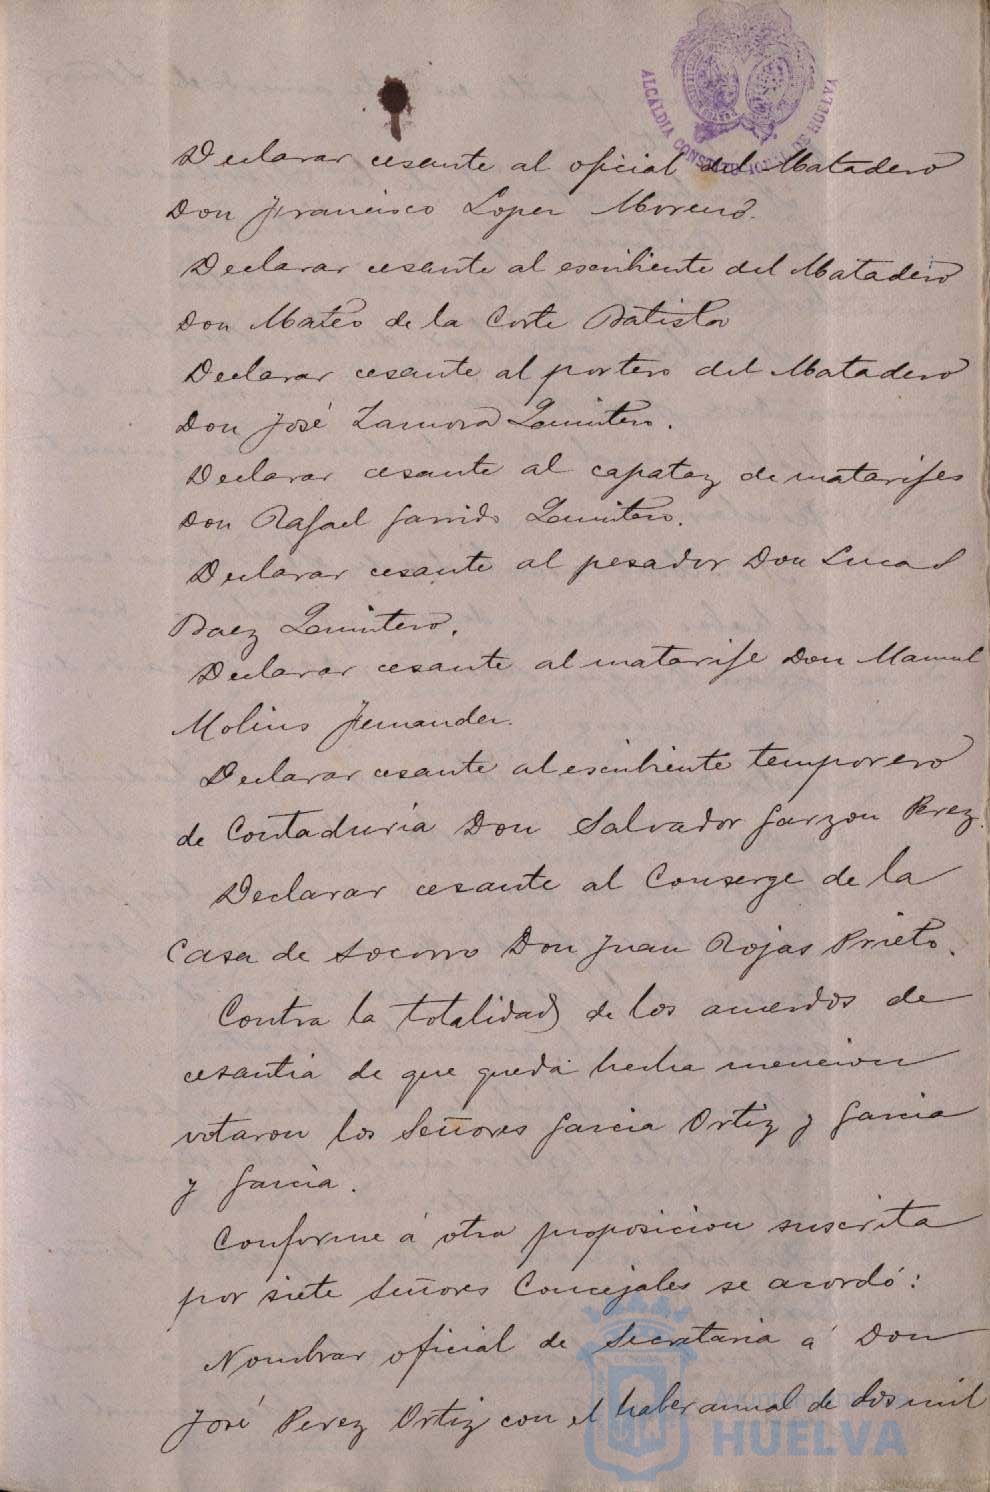 ALCALDIA CONSTITUCIONAL DE HUELVA
Declarar cesante al oficial del Matadero
Don Francisco Lopez Moreno.
Declarar cesante al escribiente del Matadero
Don Mateo de la Corte Batista
Declarar cesante al portero del Matadero
Don José Zamora Quintero.
Declarar cesante al capataz de matarifes
Don Rafael Garrido Quintero.
Declarar cesante al pesador Don Lucas
Baez Quintero.
Declarar cesante al matarife Don Manuel
Molins Fernandez.
Declarar cesante al escribiente temporero
de Contaduria Don Salvador Garzon Perez.
Declarar cesante al Conserge de la
Casa de Socorro Don Juan Rojas Prieto.
Contra la totalidad de los acuerdos de
cesantia de que queda hecha mencion
votaron los Señores Garcia Ortiz y Garcia
y Garcia.
Conforme á otra proposicion suscrita
por siete Señores Concejales se acordó:
Nombrar oficial de Secretaria á Don
José Perez Ortiz con el haber anual de dos mil
Ayuntamiento de
HUELVA